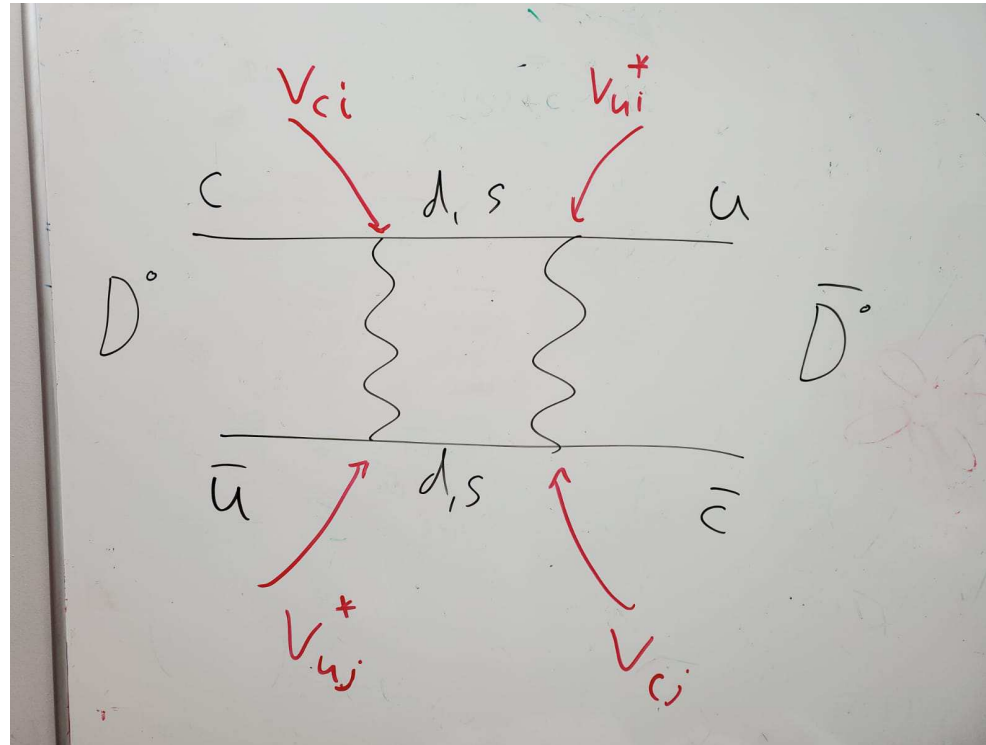 V_{ci} V_{ui}^*
c d, s u
D° D̅°
u̅ d,s c̅
V_{uj}^* V_{cj}